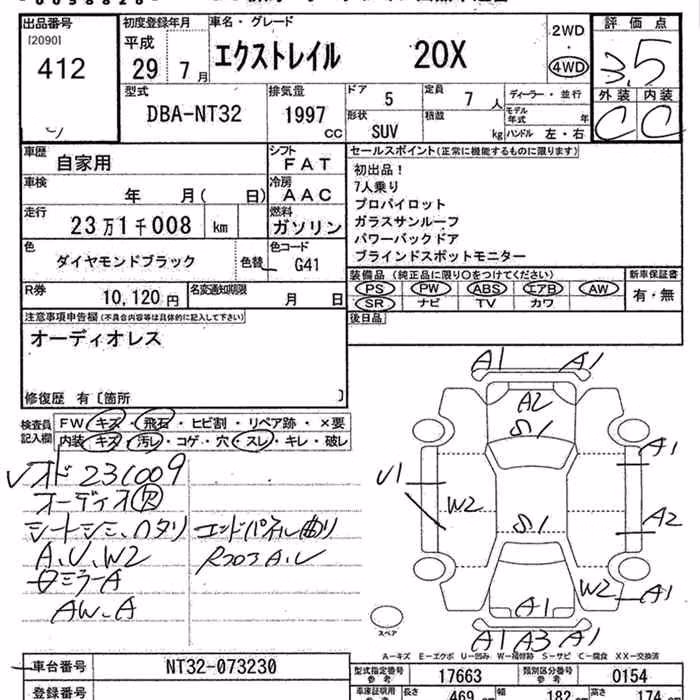 出品番号 初度登録年月 車名・グレード 評価点
[2090] 平成 2WD
412 29 7月 エクストレイル 20X 4WD 3.5
型式 排気量 ドア 5 定員 7人 ディーラー・並行 外装 内装
DBA-NT32 1997 cc 形状 SUV 積載 kg モデル年式 年 C C
ハンドル 左・右
車歴 自家用 シフト FAT セールスポイント(正常に機能するものに限ります)
車検 年 月( 日) 冷房 AAC 初出品!
走行 23万1千008 km 燃料 ガソリン 7人乗り
プロパイロット
ガラスサンルーフ
パワーバックドア
ブラインドスポットモニター
色 ダイヤモンドブラック 色替 色コード G41
装備品 (純正品に限り○をつけてください) 新車保証書
PS PW ABS エアB AW 有・無
SR ナビ TV カワ
R券 10,120円 名変通知期限 月 日
後日品
注意事項申告欄(不具合内容等は具体的に記入して下さい)
オーディオレス
修復歴 有〔箇所 〕
検査員記入欄 FW キズ・飛石・ヒビ割・リペア跡・×要
内装 キズ・汚レ・コゲ・穴・スレ・キレ・破レ
オド231009
オーディオR
シートシミ、ヘタリ エンドパネル曲り
A、U、W2 Rフロア A、U
ミラーA
AW、A
A1 A1
A2
S1
A1
U1
W2
S1
A2
W2
A1
A1
A1 A3 A1
スペア
A-キズ E-エクボ U-凹み W-補修跡 S-サビ C-腐食 XX-交換済
車台番号 NT32-073230 型式指定番号 参考 17663 類別区分番号 参考 0154
登録番号 車庫証明用 参考 長さ 469 cm 幅 182 cm 高さ 174 cm